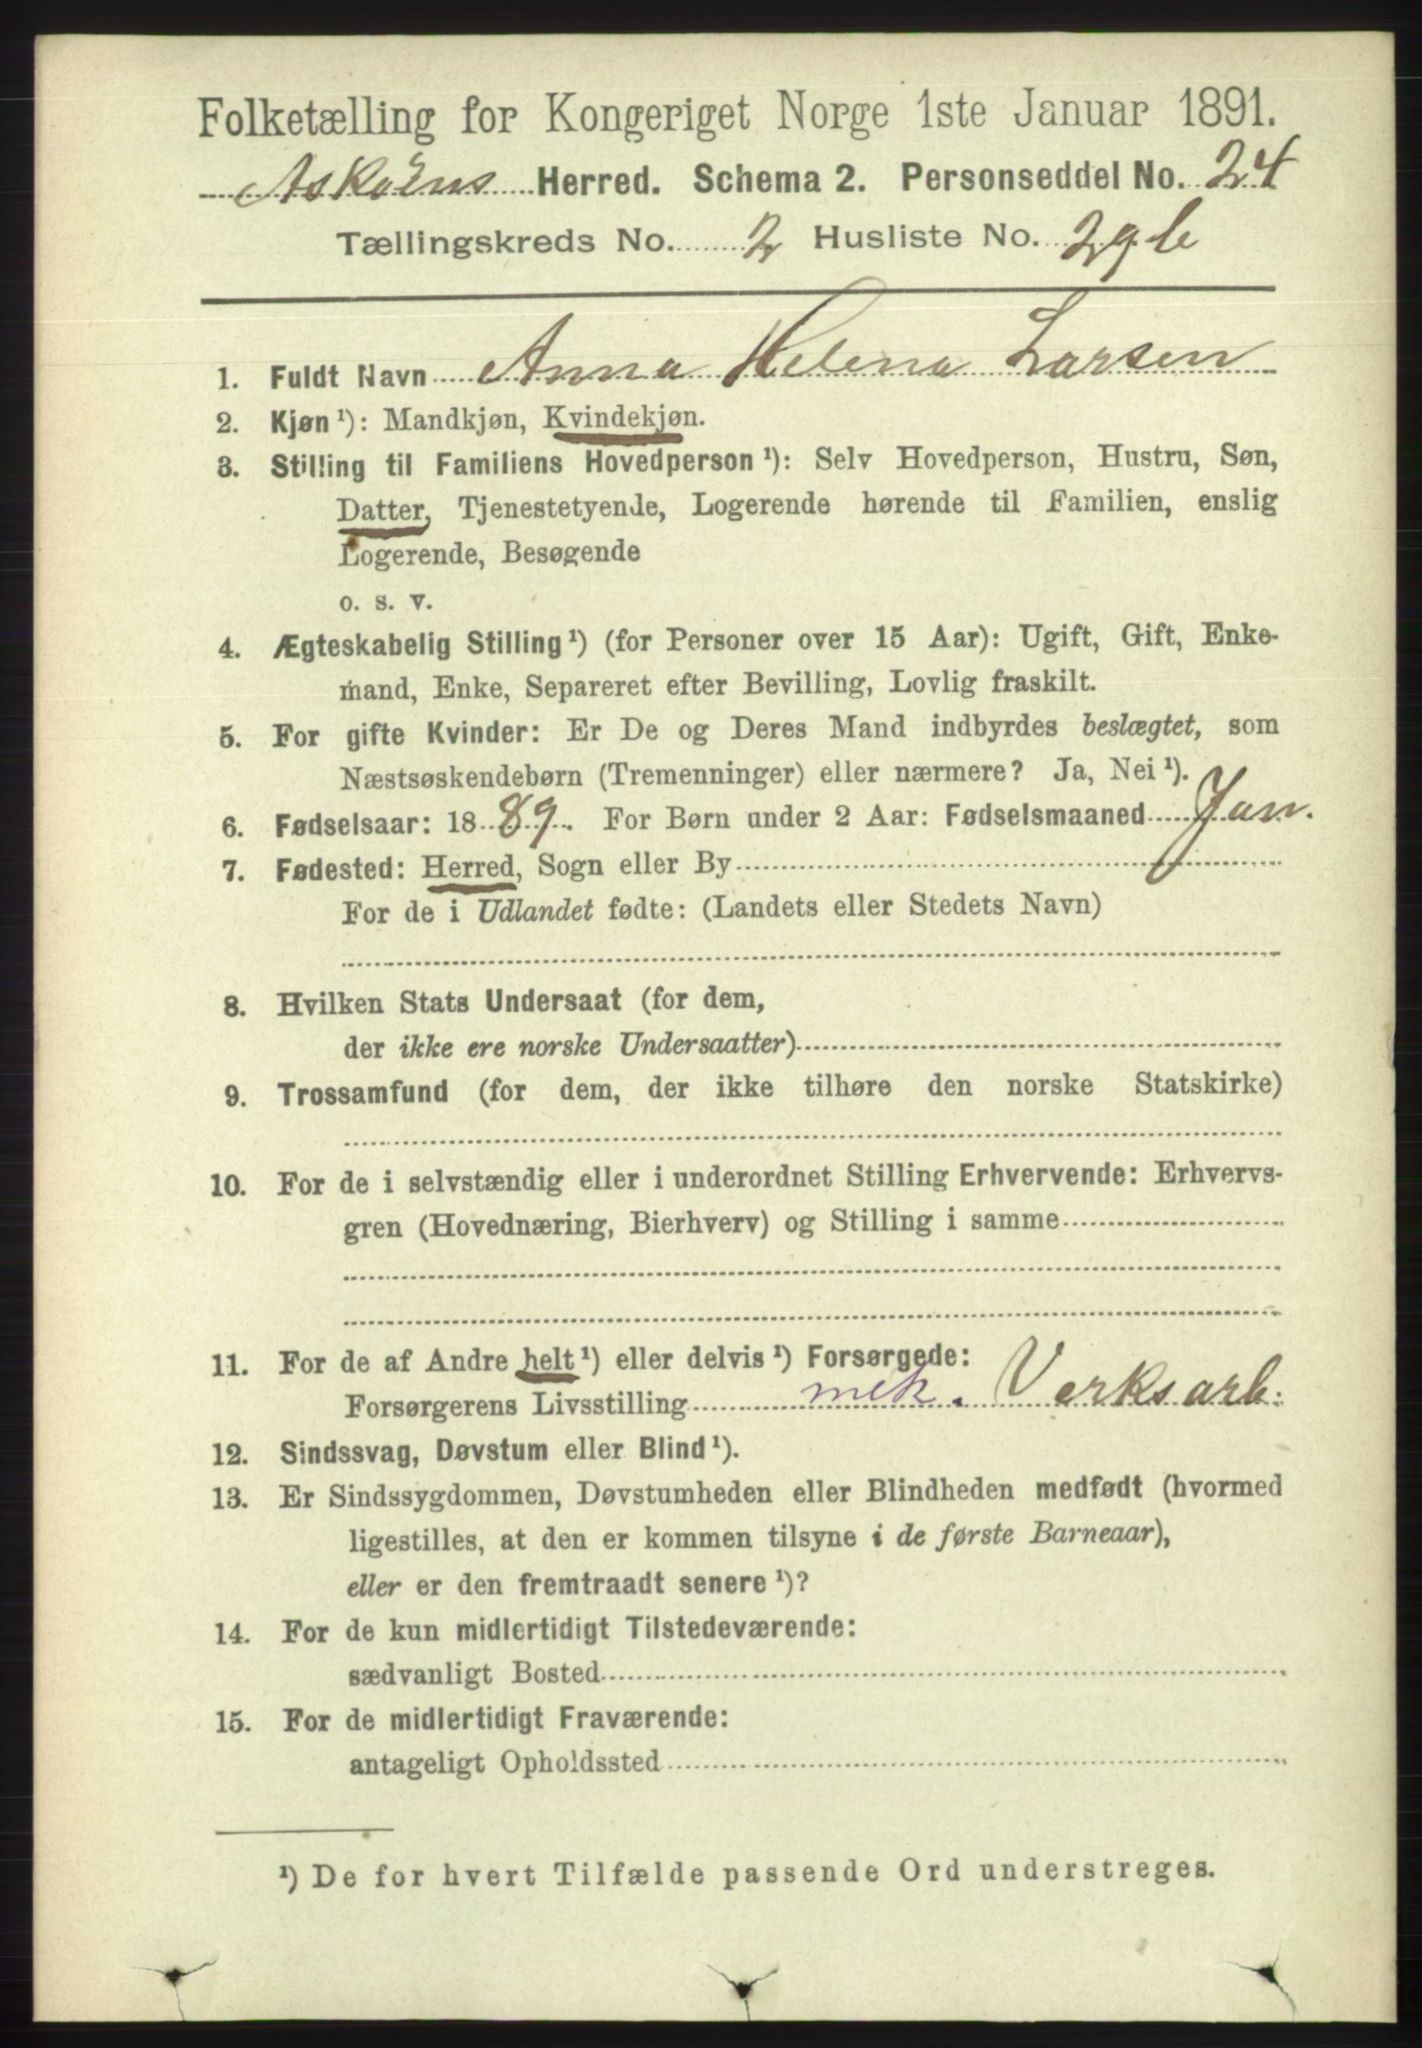 Folketælling for Kongeriget Norge 1ste Januar 1891.
Askøens Herred. Schema 2. Personseddel No. 24
Tællingskreds No. 2 Husliste No. 29b
1. Fuldt Navn Anna Helena Larsen
2. Kjøn ¹): Mandkjøn, Kvindekjøn.
3. Stilling til Familiens Hovedperson ¹): Selv Hovedperson, Hustru, Søn,
Datter, Tjenestetyende, Logerende hørende til Familien, enslig
Logerende, Besøgende
o. s. v.
4. Ægteskabelig Stilling ¹) (for Personer over 15 Aar): Ugift, Gift, Enke-
mand, Enke, Separeret efter Bevilling, Lovlig fraskilt.
5. For gifte Kvinder: Er De og Deres Mand indbyrdes beslægtet, som
Næstsøskendebørn (Tremenninger) eller nærmere? Ja, Nei ¹).
6. Fødselsaar: 1889. For Børn under 2 Aar: Fødselsmaaned Jan.
7. Fødested: Herred, Sogn eller By
For de i Udlandet fødte: (Landets eller Stedets Navn)
8. Hvilken Stats Undersaat (for dem,
der ikke ere norske Undersaatter)
9. Trossamfund (for dem, der ikke tilhøre den norske Statskirke)
10. For de i selvstændig eller i underordnet Stilling Erhvervende: Erhvervs-
gren (Hovednæring, Bierhverv) og Stilling i samme
11. For de af Andre helt ¹) eller delvis ¹) Forsørgede:
Forsørgerens Livsstilling mek. Verksarb:
12. Sindssvag, Døvstum eller Blind ¹).
13. Er Sindssygdommen, Døvstumheden eller Blindheden medfødt (hvormed
ligestilles, at den er kommen tilsyne i de første Barneaar),
eller er den fremtraadt senere ¹)?
14. For de kun midlertidigt Tilstedeværende:
sædvanligt Bosted
15. For de midlertidigt Fraværende:
antageligt Opholdssted
¹) De for hvert Tilfælde passende Ord understreges.